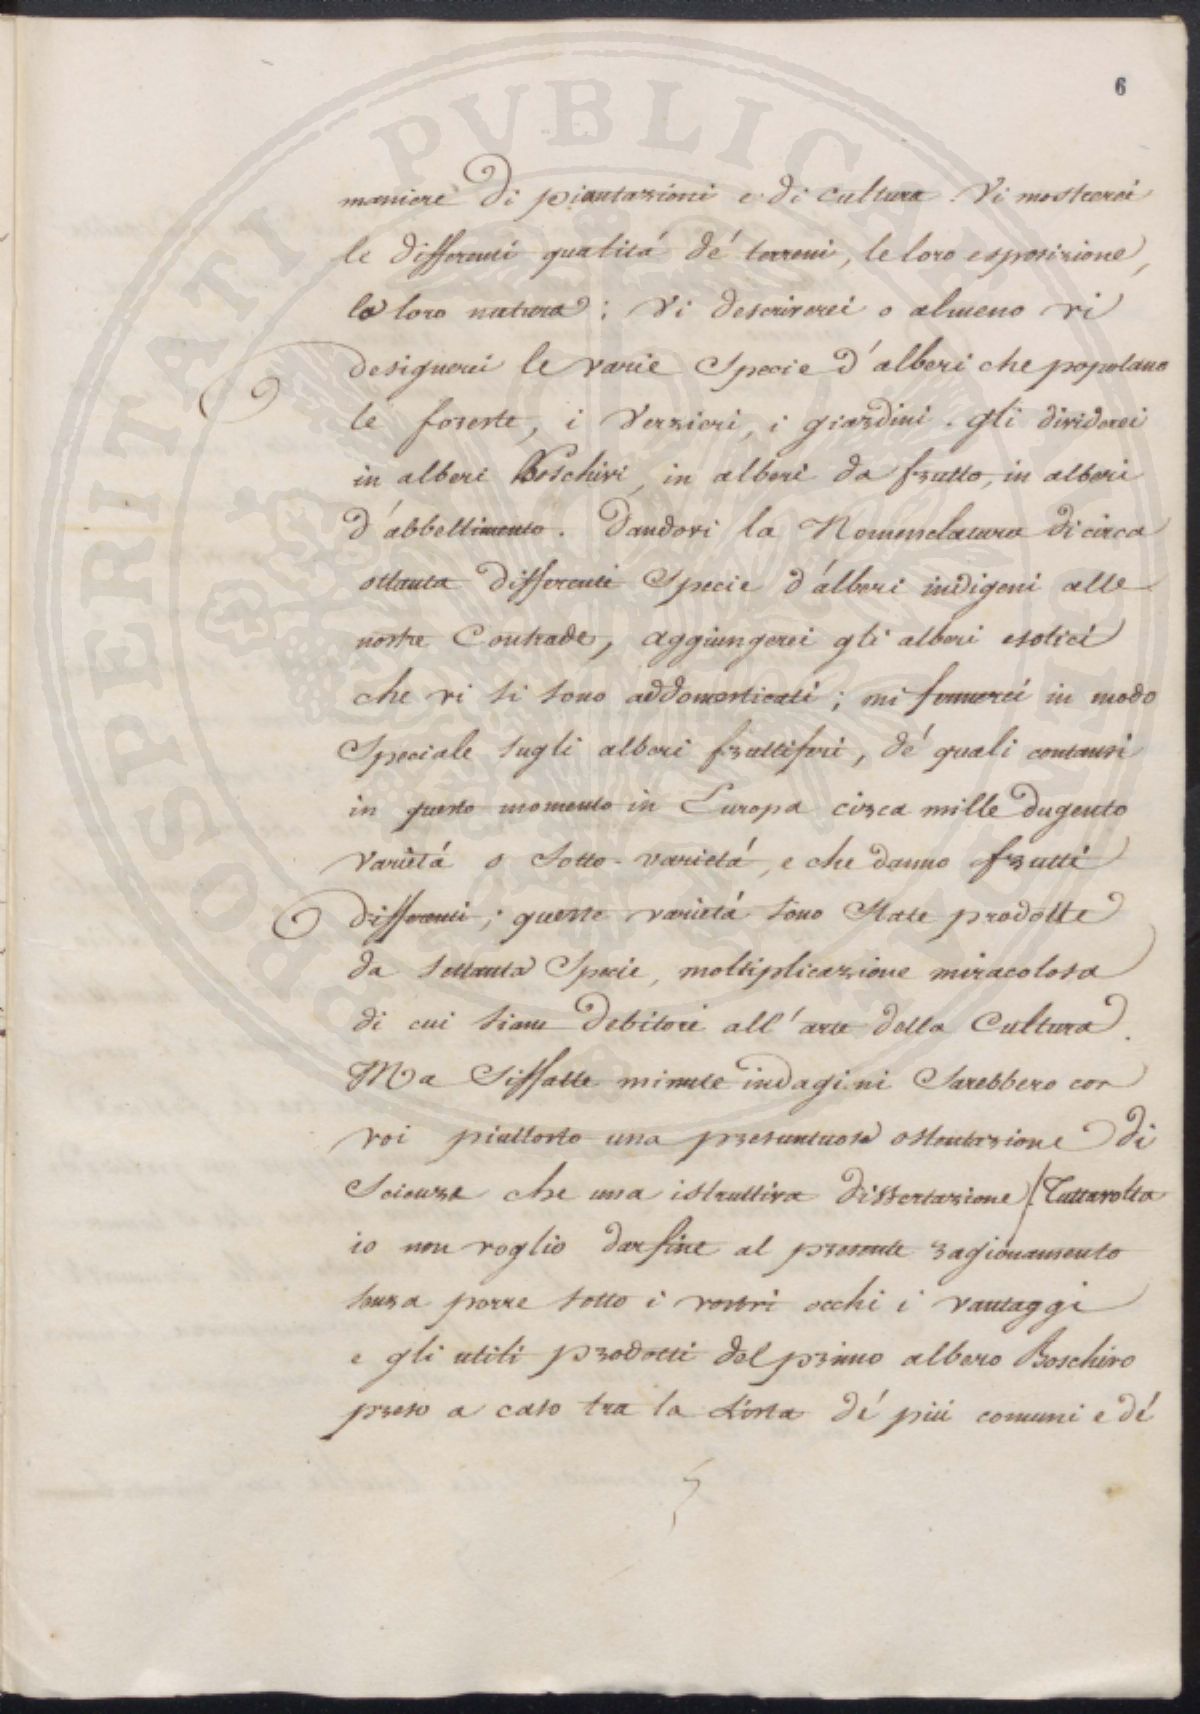 6
maniere di piantazioni e di cultura. Vi mostrerei
le differenti qualitá de' terreni, le loro esposizione,
la loro natura: Vi descriverei o almeno vi
designerei le varie Specie d'alberi che popolano
le foreste, i Verzieri, i giardini. gli dividerei
in alberi Boschivi, in alberi da frutto, in alberi
d'abbellimento. Dandovi la Nomenclatura di circa
ottanta differenti Specie d'alberi indigeni alle
nostre Contrade, aggiungerei gli alberi esotici
che vi si sono addomesticati; mi fermerei in modo
Speciale sugli alberi fruttiferi, de' quali contansi
in questo momento in Europa circa mille dugento
varietá o Sotto-varietá, e che danno frutti
differenti; queste varietá sono State prodotte
da settanta Specie, moltiplicazione miracolosa
di cui siam debitori all'arte della Cultura.
Ma Siffatte minute indagini Sarebbero con
voi piuttosto una presuntuosa ostentazione di
Scienza che una istruttiva dissertazione. Tuttavolta
io non voglio dar fine al presente ragionamento
senza porre sotto i vostri occhi i vantaggi
e gli utili prodotti del primo albero Boschivo
preso a caso tra la lista de' piú comuni e de'
PROSPERITATI PVBLICAE